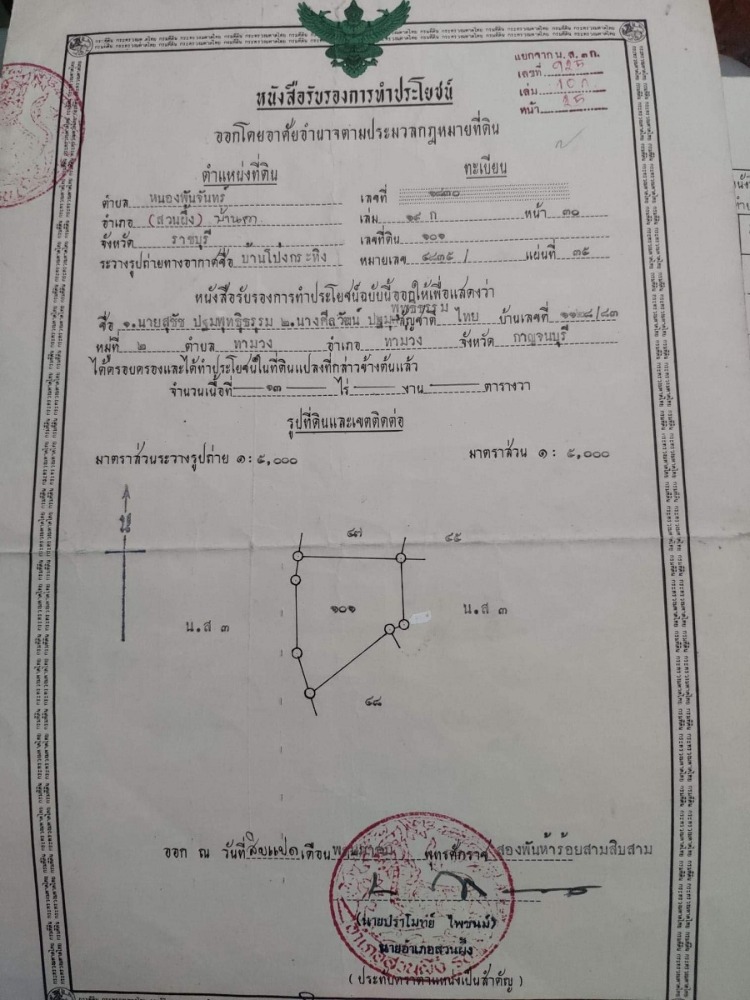 แยกจาก น.ส.๓ก.
เลขที่ ๑๒๕
เล่ม ๑๐ก
หน้า ๒๕
หนังสือรับรองการทำประโยชน์
ออกโดยอาศัยอำนาจตามประมวลกฎหมายที่ดิน
ตำแหน่งที่ดิน ทะเบียน
ตำบล หนองพันจันทร์ เลขที่ ๑๘๓๐
อำเภอ (สวนผึ้ง) บ้านคา เล่ม ๑๙ ก หน้า ๓๐
จังหวัด ราชบุรี เลขที่ดิน ๑๐๑
ระวางรูปถ่ายทางอากาศชื่อ บ้านโป่งกระทิง หมายเลข ๔๘๓๕ / แผ่นที่ ๓๕
หนังสือรับรองการทำประโยชน์ฉบับนี้ออกให้เพื่อแสดงว่า
พุทธิธรรม
ชื่อ ๑.นายสุชัช ปฐมพุทธิธรรม ๒.นางศีลวัฒน์ ปฐม สัญชาติ ไทย บ้านเลขที่ /๘๓
หมู่ที่ ๒ ตำบล ทามวง อำเภอ ทามวง จังหวัด กาญจนบุรี
ได้ครอบครองและได้ทำประโยชน์ในที่ดินแปลงที่กล่าวข้างต้นแล้ว
จำนวนเนื้อที่ ๑๓ ไร่ — งาน — ตารางวา
รูปที่ดินและเขตติดต่อ
มาตราส่วนระวางรูปถ่าย ๑:๕,๐๐๐ มาตราส่วน ๑: ๕,๐๐๐
น
๔๗ ๔๕
๑๐๑
น.ส ๓ น.ส ๓
๔๘
ออก ณ วันที่ สิบแปด เดือน พฤษภาคม พุทธศักราช สองพันห้าร้อยสามสิบสาม
(นายปราโมทย์ ไพชนม์)
นายอำเภอสวนผึ้ง
(ประทับตราตำแหน่งเป็นสำคัญ)